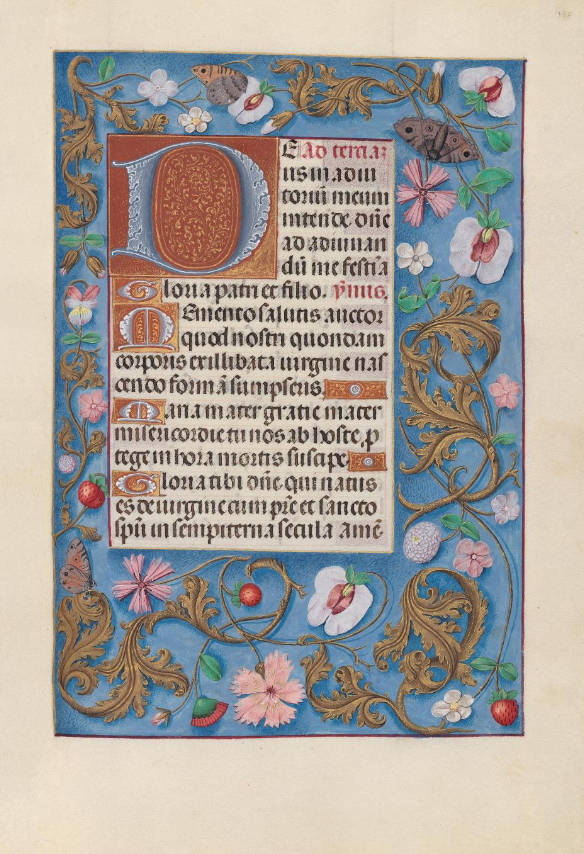 DE Ad terciaz
us in adiu
toriū meum
intende. dn̄e
ad adiuuan
dū me festīa
Gloria patri et filio. ymnis.
Memento salutis auctor
quod nostri quondam
corporis ex illibata uirgine nas
cendo formā sumpseris.
Maria mater gratie mater
misericordie tu nos ab hoste, p
tege in hora mortis suscipe.
Gloria tibi dn̄e qui natus
es de uirgine cum pr̄e et sancto
spū in sempiterna secula amē